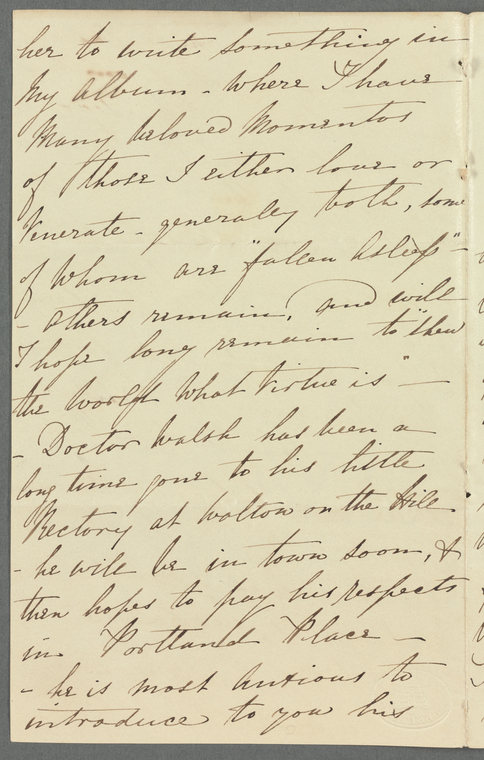 her to write something in
My Album - where I have
Many beloved Momentos
of those I either love or
Venerate - generaley both, some
of whom are "fallen Asleep" -
- others remain, and will
I hope long remain to "shew
the World what Virtue is" -
- Doctor Walsh has been a
long time gone to his little
Rectory at Walton on the Hill
- he will be in town soon, &
then hopes to pay his respects
in Portland Place -
- he is most Anxious to
introduce to you his